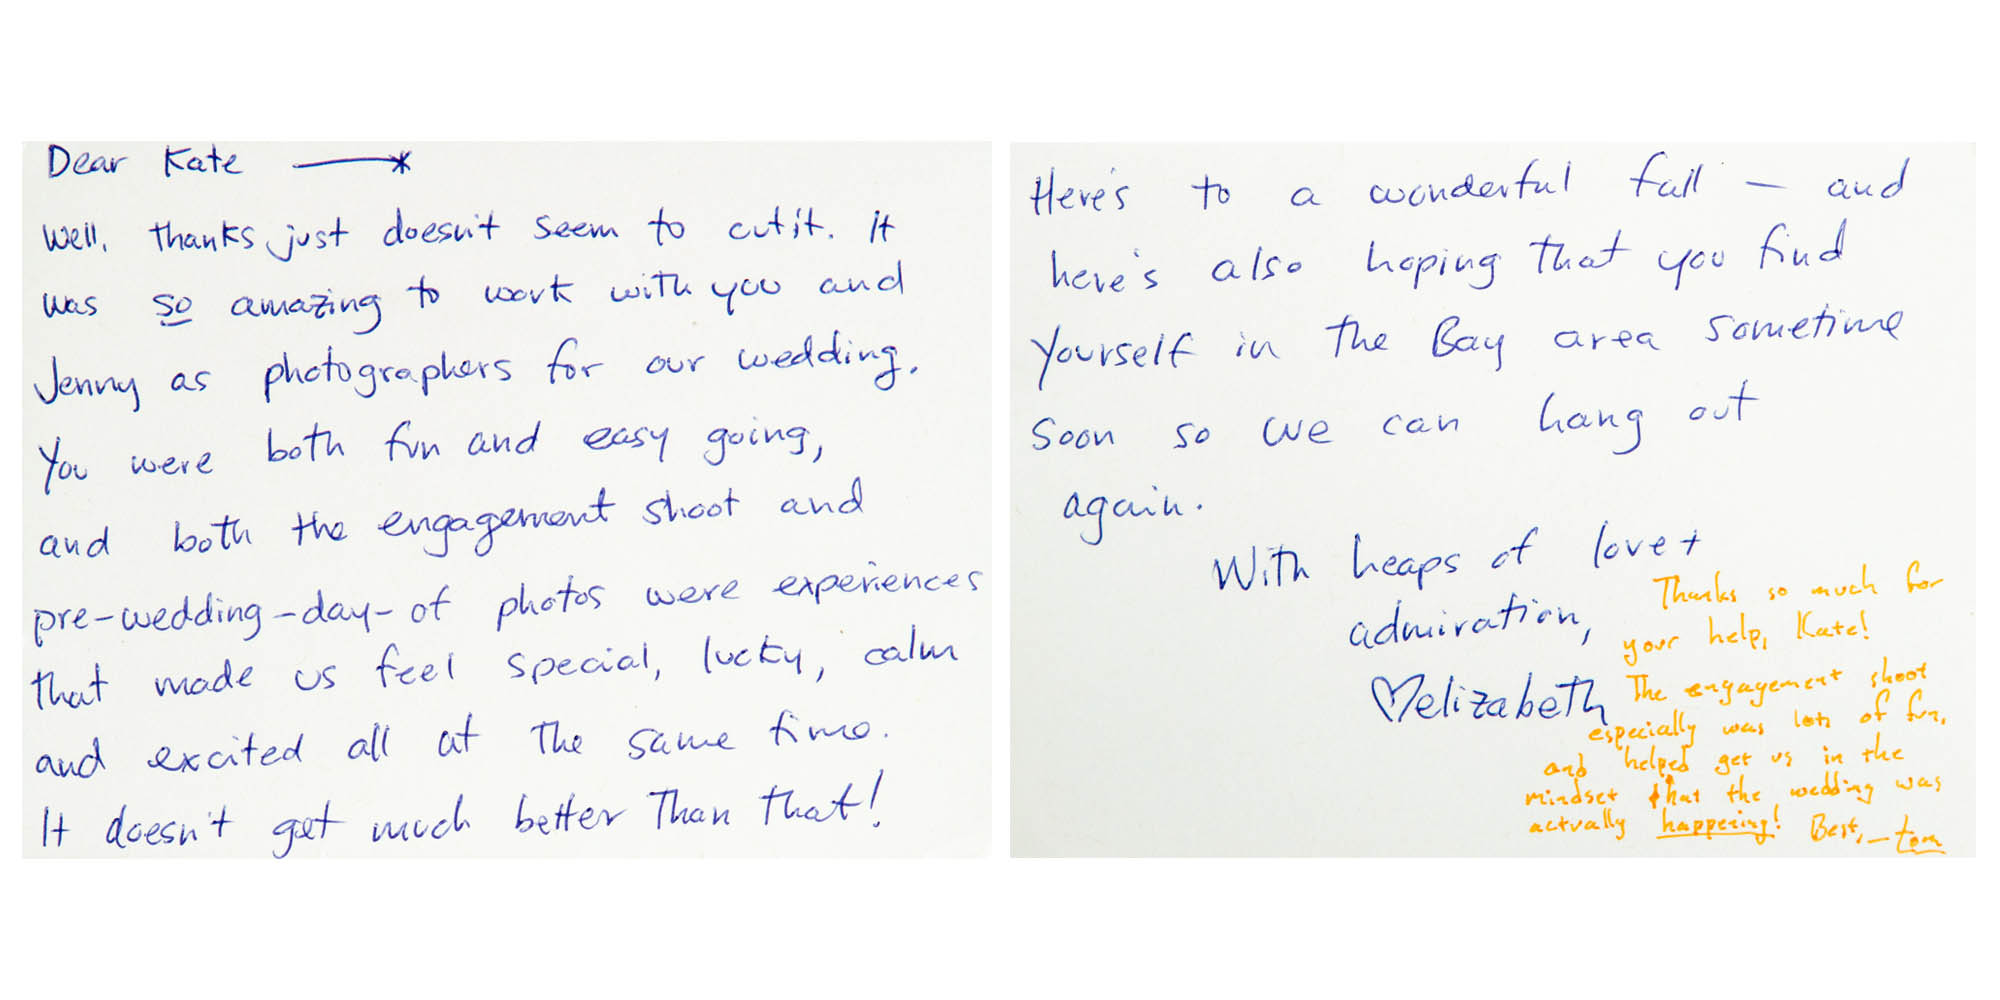 Dear Kate —*
Well, thanks just doesn't seem to cut it. It
was so amazing to work with you and
Jenny as photographers for our wedding.
You were both fun and easy going,
and both the engagement shoot and
pre-wedding-day-of photos were experiences
that made us feel special, lucky, calm
and excited all at the same time.
It doesn't get much better than that!
Here's to a wonderful fall — and
here's also hoping that you find
yourself in the Bay area sometime
soon so we can hang out
again.
With heaps of love +
admiration,
♡elizabeth
Thanks so much for
your help, Kate!
The engagement shoot
especially was lots of fun,
and helped get us in the
mindset that the wedding was
actually happening! Best, —tom